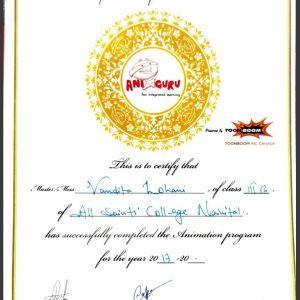 ANI GURU
for integrated learning
Powered by TOONBOOM
TOONBOOM INC. CANADA
This is to certify that
Master/Miss Vandita Lohani of class III B
of All Saints' College Nainital
has successfully completed the Animation program
for the year 2017-20